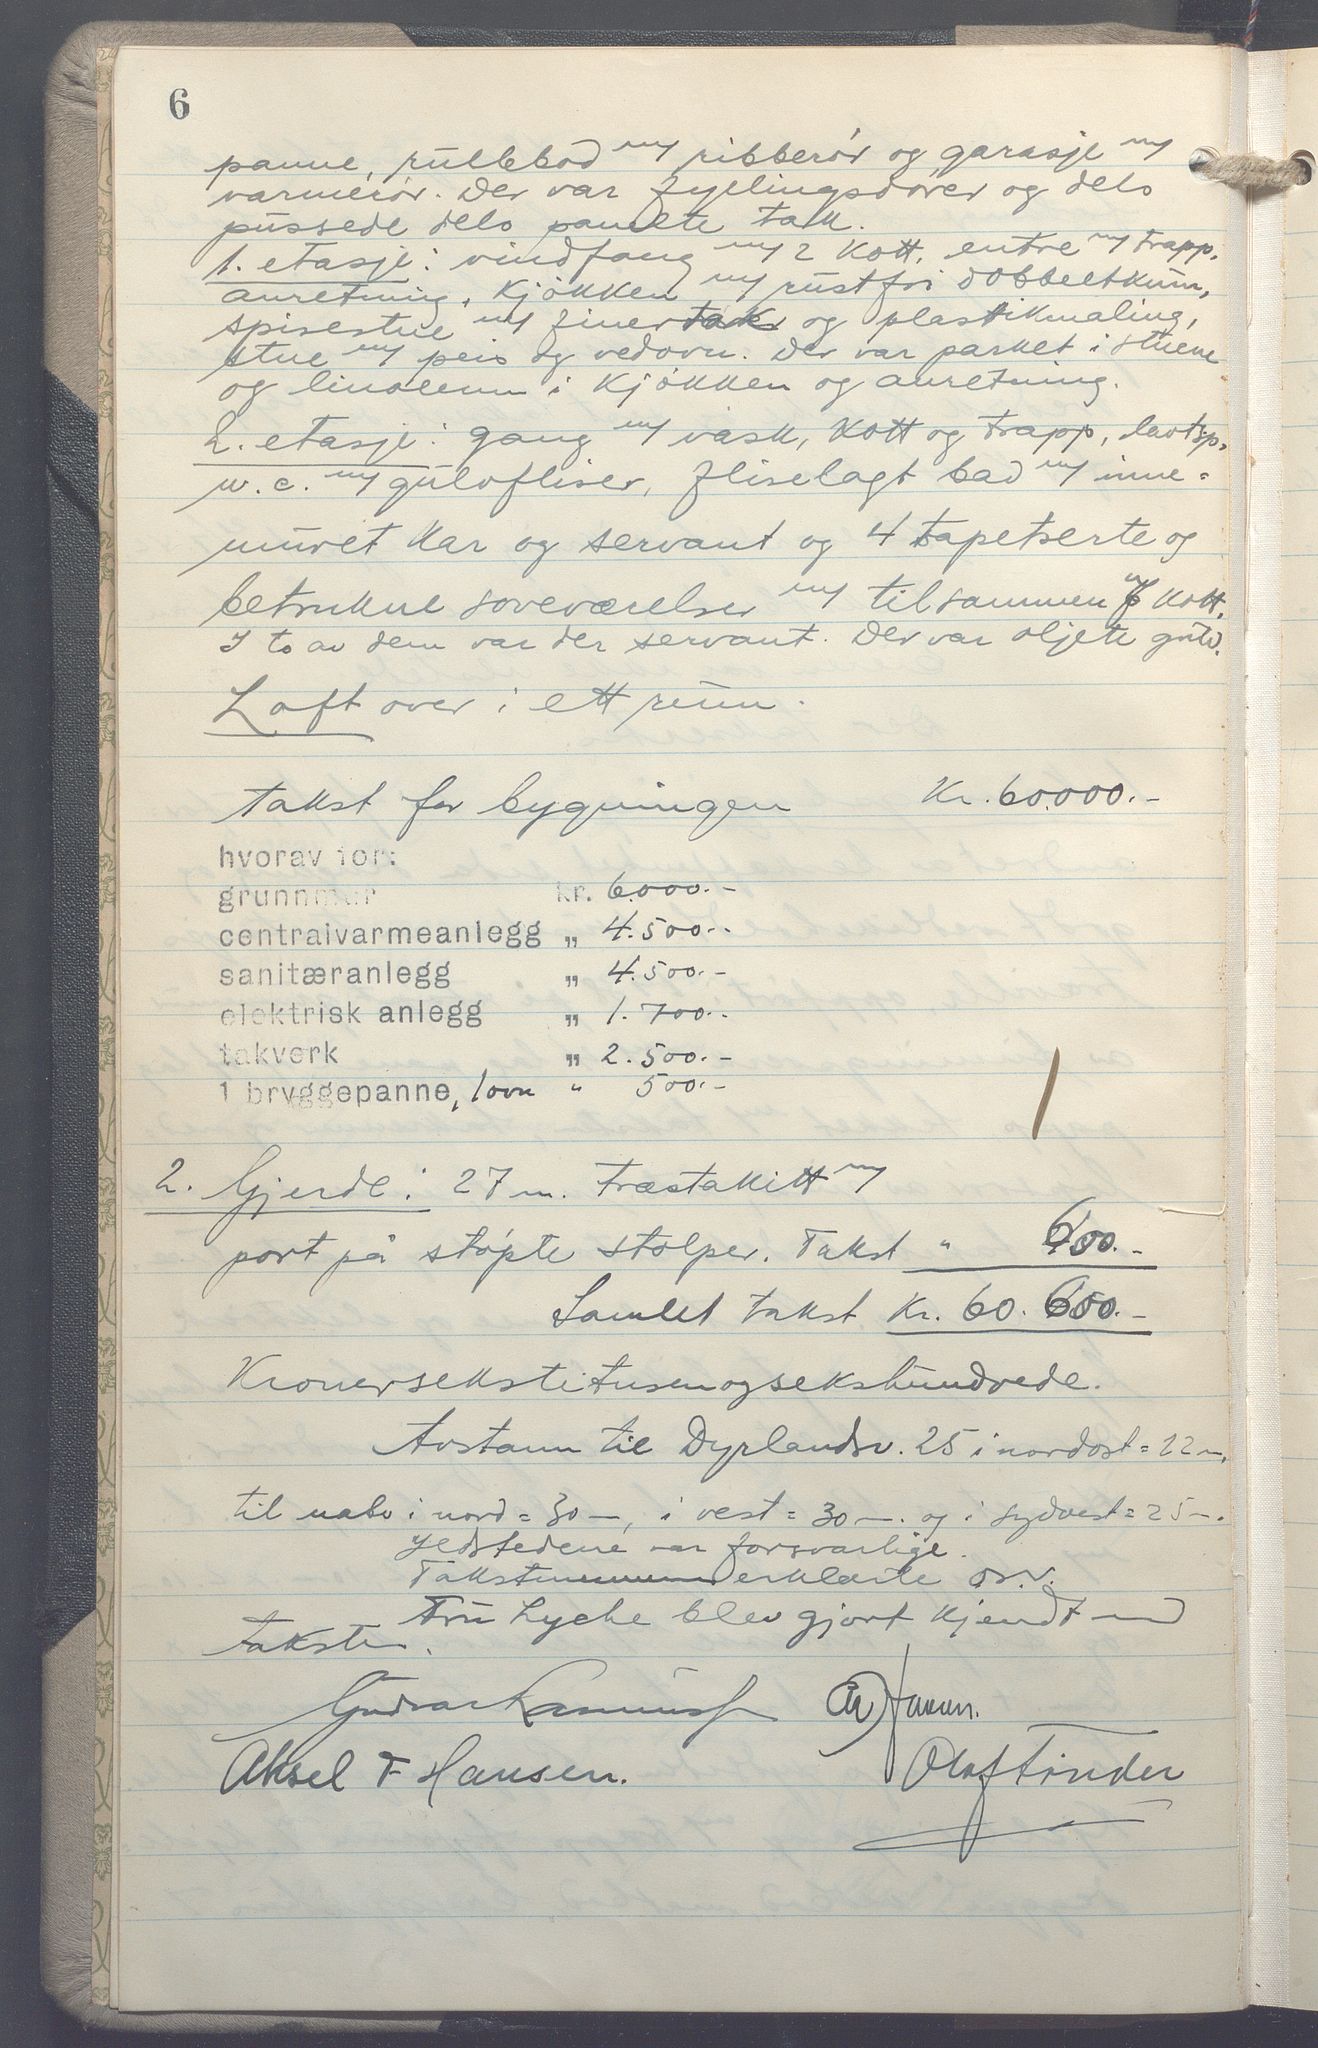 6
panne, rullebod m/ ribberör og garasje m/
varmerör. Der var fyllingsdörer og dels
pussede dels panelte tak.
1. etasje: vindfang m/ 2 kott, entre m/ trapp,
anretning, kjökken m/ rustfri dobbeltkum,
spisestue m/ finertak og plastikmaling,
stue m/ peis og vedovn. Der var parket i stuene
og linoleum i kjökken og anretning.
2. etasje: gang m/ vask, kott og trapp, lavtsp.
w.c. m/ gulvfliser, fliselagt bad m/ inne-
muret kar og servant og 4 tapetserte og
betrukne soveværelser m/ tilsammen kott.
I to av dem var der servant. Der var oljete gulv.
Loft over i ett rum.
Takst for bygningen Kr. 60.000.-
hvorav for:
grunnmur kr. 6.000.-
centralvarmeanlegg „ 4.500.-
sanitæranlegg „ 4.500.-
elektrisk anlegg „ 1.700.-
takverk „ 2.500.-
1 bryggepanne, 1 ovn " 500.-
2. Gjerde: 27 m. træstakitt m/
port på stöpte stolper. Takst " 600.-
Samlet takst Kr. 60.600.-
Kronersekstitusenogsekshundrede.
Avstann til Dyrlandsv. 25 i nordost = 22 m,
til nabo i nord = 30 m, i vest = 30 m. og i sydvest = 25 m.
Ildstedene var forsvarlige.
Takstmennene erklærte o.s.v.
Fru Lyche blev gjort kjendt med
taksten.
Gudvar Rasmussen
Aksel F Hansen.
Olaf Tinder